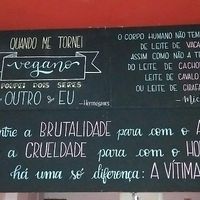 QUANDO ME TORNEI
vegano
POUPEI DOIS SERES
O OUTRO E EU
Hermógenes
O CORPO HUMANO NÃO TEM
DE LEITE DE VACA
ASSIM COMO NÃO T
DO LEITE DE CACHO
DO LEITE DE CAVALO
OU LEITE DE GIRAFA
Mic
ntre a BRUTALIDADE para com o A
a CRUELDADE para com o HO
há uma só diferença: A VÍTIMA